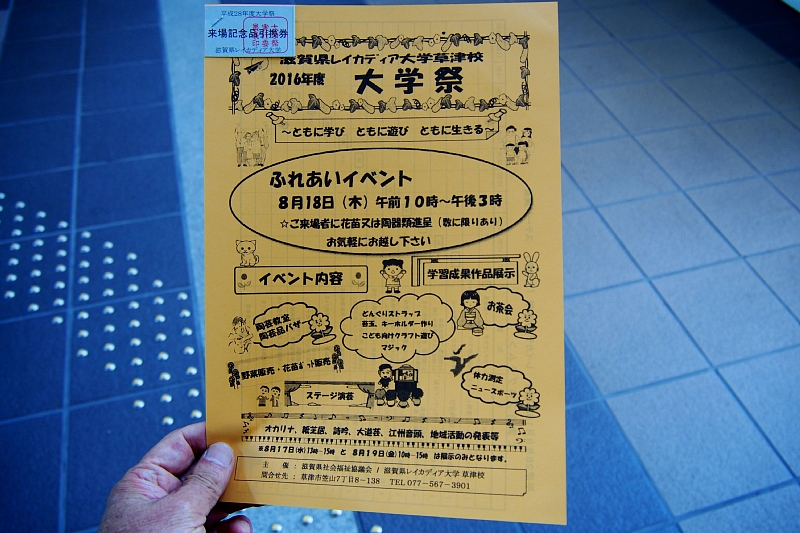 平成28年度大学祭
来場記念品引換券
滋賀県レイカディア大学
滋賀県レイカディア大学草津校
2016年度 大学祭
～ともに学び ともに遊び ともに生きる～
ふれあいイベント
8月18日（木）午前10時～午後3時
☆ご来場者に花苗又は陶器類進呈（数に限りあり）
お気軽にお越し下さい
イベント内容
学習成果作品展示
陶芸教室
陶芸品バザー
どんぐりストラップ
苔玉、キーホルダー作り
こども向けクラフト遊び
マジック
お茶会
野菜販売・花苗ポット販売
ステージ演芸
体力測定
ニュースポーツ
オカリナ、紙芝居、詩吟、大道芸、江州音頭、地域活動の発表等
※8月17日(水)13時～15時 と 8月19日(金)10時～15時 は展示のみとなります。
主 催 : 滋賀県社会福祉協議会 / 滋賀県レイカディア大学 草津校
問合せ先 : 草津市笠山7丁目8－138 TEL 077－567－3901